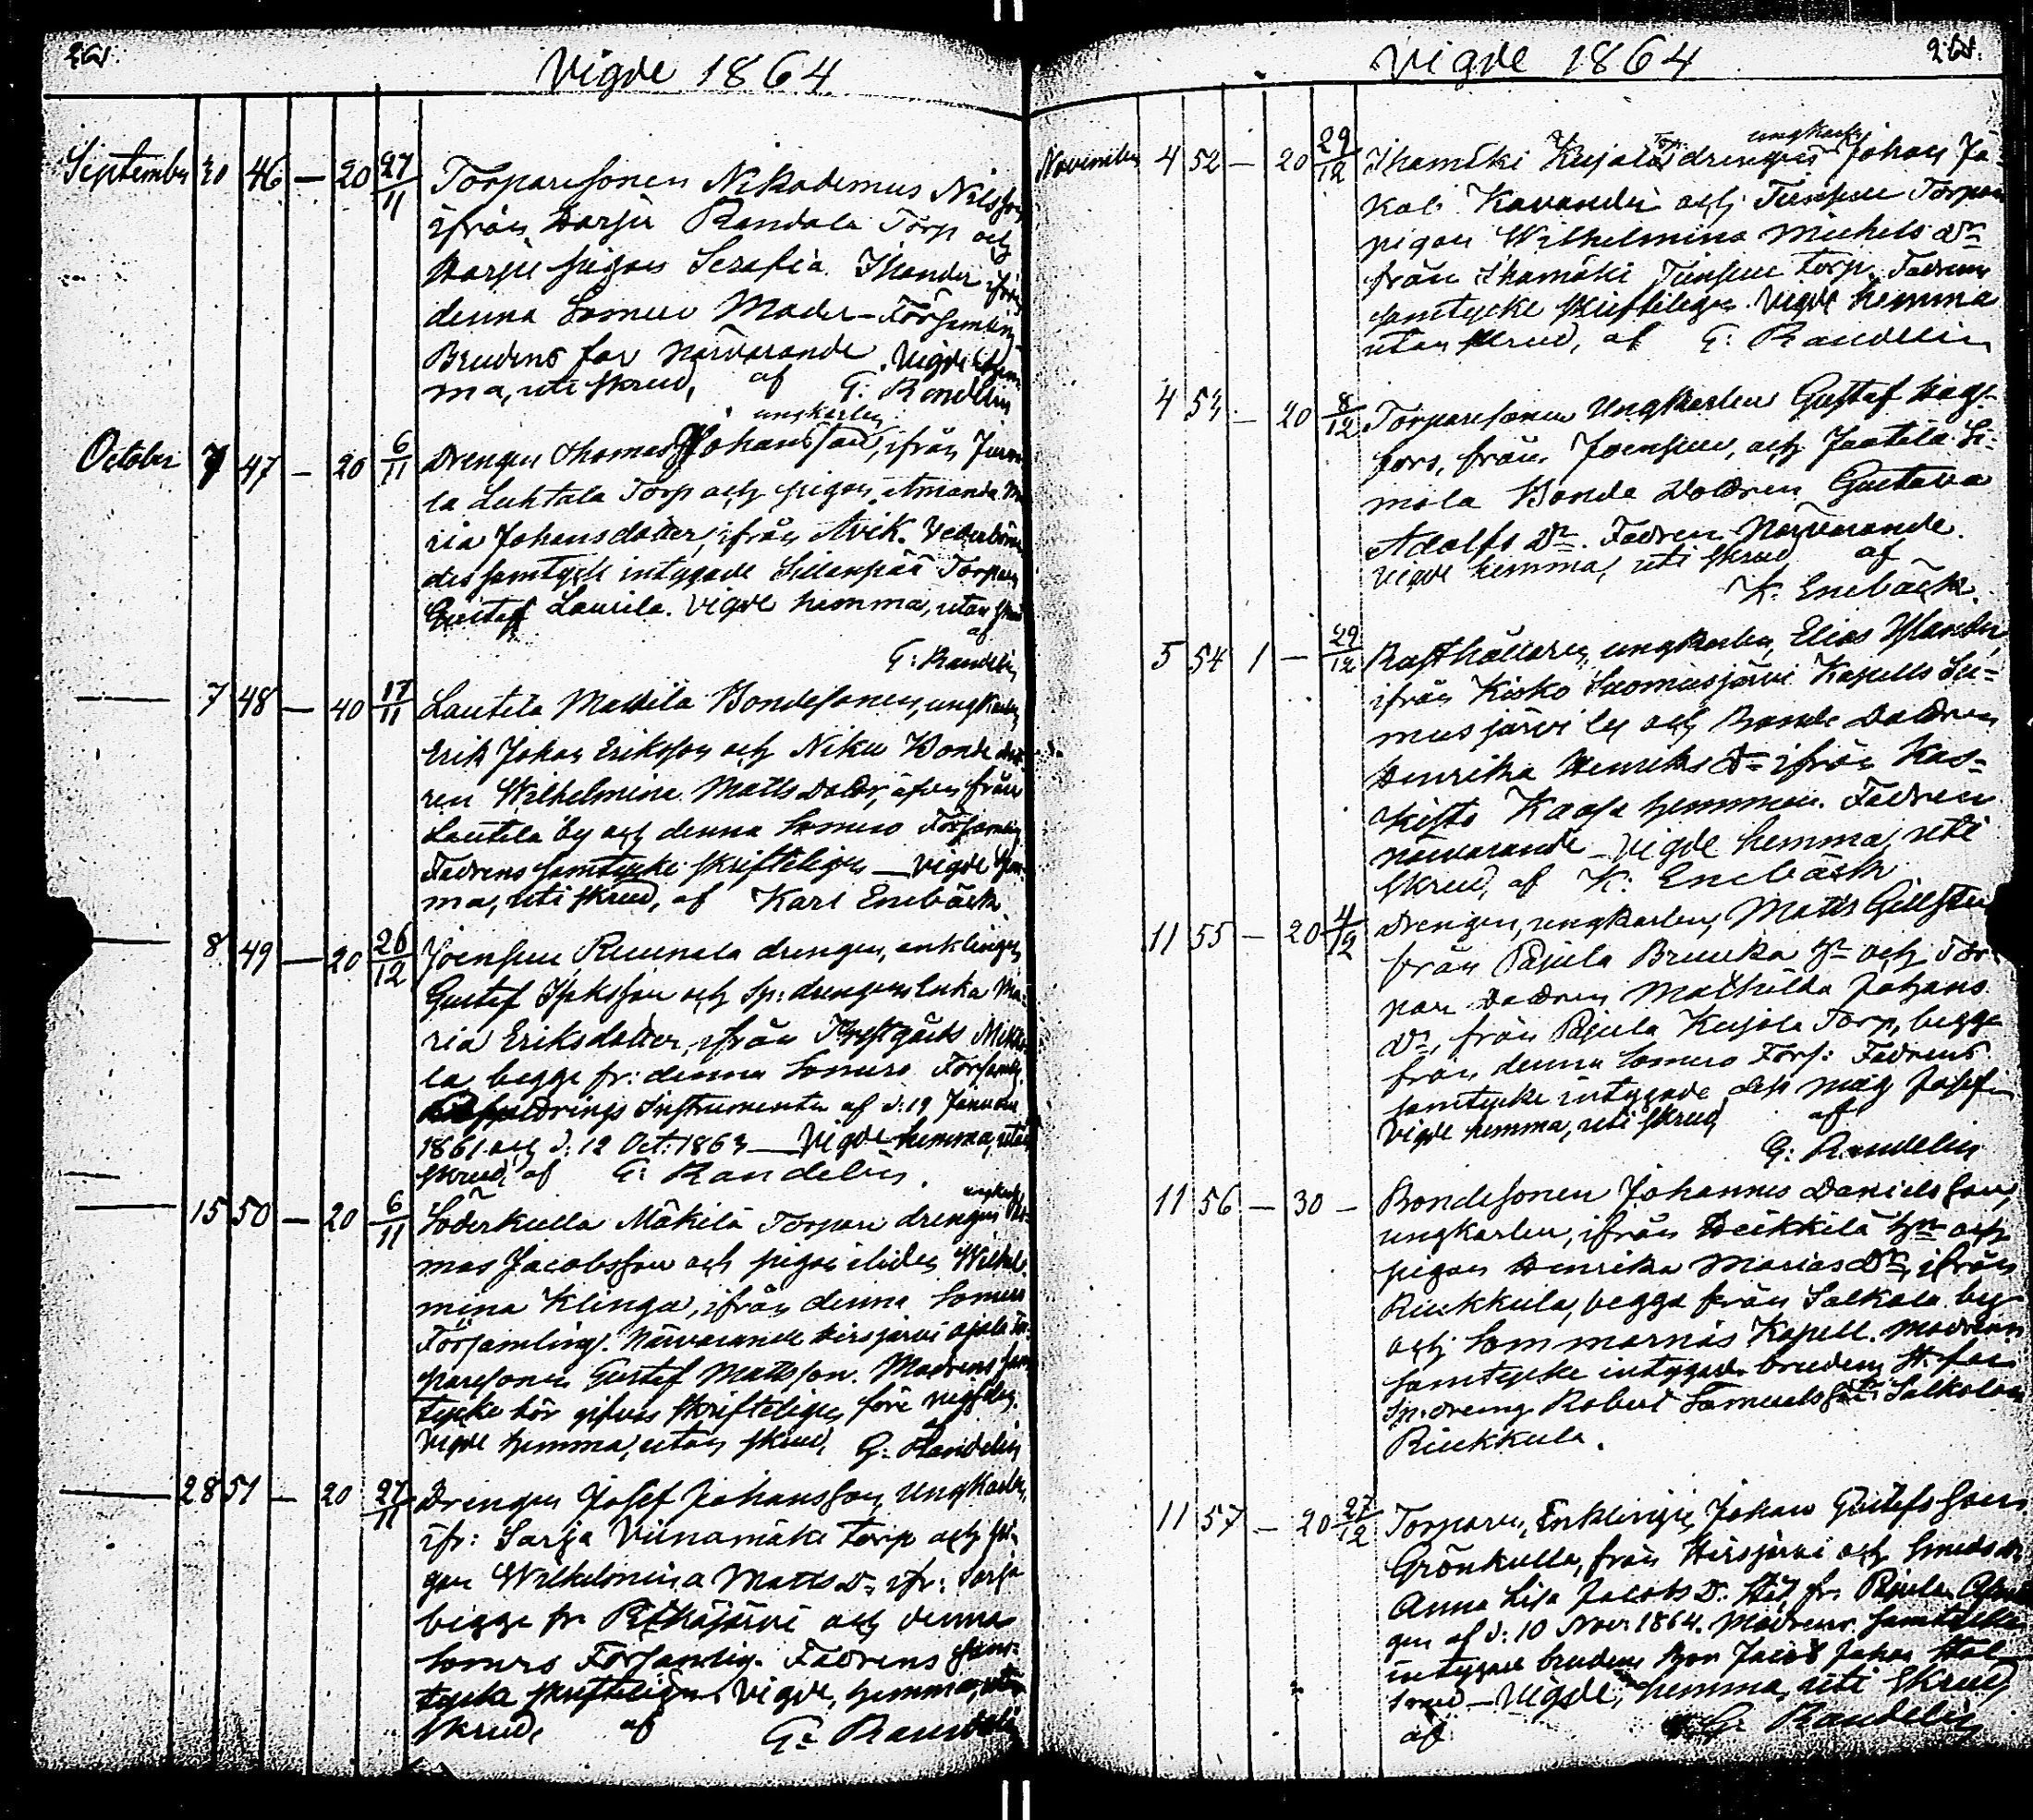 268.
Vigde 1864
September 30 46 — 20 27/11 Torparesonen Nikodemus Nilsson
ifrån Harju Randala Torp och
Harju pigan Serafia Thander ifrån
denna Somero Moder-Församling
Brudens far närvarande. Vigde hem-
ma, uti skrud, af G: Randelin
ungkarlen
October 7 47 — 20 6/11 Drengen Thomas Johansson, ifrån
la Luhtala Torp och pigan Amanda Ma-
ria Johansdotter, ifrån Avik. Vederböran-
des samtycke intygade Sillanpää Torparen
Gustaf Laurila. Vigde hemma, utan skrud
af
G: Randelin
— 7 48 — 40 17/11 Lautela Mattila Bondesonen, ungkarlen
Erik Johan Eriksson och Niku Bonde dot-
ren Wilhelmina Matts Dotter, äfven från
Lautela by och denna Somero Församling
Fadrens samtycke skrifteligen — Vigde hem-
ma, uti skrud, af Karl Enebäck.
— 8 49 — 20 26/12 Joensuu Ruunala drengen, enklingen
Gustaf Isaksson och Sp: drengens Enka Ma-
ria Eriksdotter, ifrån Prestgårds Mikko-
la, begge fr: denna Somero Församling.
Instrumenter af d: 19 Januari
1861 och d: 12 Oct: 1863 — Vigde hemma, utan
skrud, af G: Randelin.
ungkarlen
— 15 50 — 20 6/11 Söderkulla Mäkilä Torpare drengen Tho-
mas Jacobsson och pigan Wilhel-
mina Klinga, ifrån denna Somero
Församling. Närvarande Hirsjärvi Ojala Tor-
paresonen Gustaf Mattsson. Modrens sam-
tycke bör gifvas skrifteligen före
Vigde hemma, utan skrud, af G. Randelin
— 28 51 — 20 27/11 Drengen Josef Johansson, Ungkarlen,
ifr: Sarja Viinamäki torp och pi-
gan Wilhelmina Matts D:r ifr: Sarja
begge fr. Pitkäjärvi och denna
Somero Församling. Fadrens sam-
tycke skrifteligen. Vigde, hemma, utan
skrud, af G: Randelin
Vigde 1864
268.
ungkarlen
November 4 52 — 20 29/12 Ihamäki Kujala Torp. drengen Johan Ja-
kob Kavander och Torpare
pigan Wilhelmina Michels D:r
från Ihamäki torp. Fadrens
samtycke skrifteligen. Vigde hemma
utan skrud, af G: Randelin
4 53 — 20 8/12 Torparesonen Ungkarlen Gustaf Hag-
fors, från Joensuu, och Jaatila Si-
mola Bonde Dottren Gustava
Adolfs D:r. Fadren Närvarande.
Vigde hemma, uti skrud af
K: Enebäck.
5 54 1 — 29/12 Rusthållaren, ungkarlen, Elias
ifrån Kisko Suomusjärvi Kapells Su-
musjärvi by och Bonde Dottren
Henrika Henriks D:r ifrån Kas-
kisto Kaasa hemman. Fadren
närvarande — Vigde hemma, uti
skrud, af K: Enebäck
11 55 — 20 4/12 Drengen, ungkarlen, Matts
från Pajula Bruuka h:n och Tor-
pare Dottren Mathilda Johans
D:r, från Pajula Kujala Torp, begge
från denna Somero Förs: Fadrens
samtycke intygade dess måg Josef
Vigde hemma, uti skrud, af
G: Randelin
11 56 — 30 — Bondesonen Johannes Danielsson,
ungkarlen, ifrån Heikkilä h:n och
pigan Henrika Marias D:r, ifrån
Riukkula, begge från Salkola by
och Sommarnäs Kapell. Modrens
samtycke intygade brudens St. far
Sp: dreng Robert Samuelsson Salkola
Riukkula.
11 57 — 20 27/12 Torparen, Enklingen, Johan Gustafsson
Grönkulla, från Hirsjärvi och
Anna Lisa Jacobs D: fr. Pajula
gen af d: 10 Nov: 1864. Modrens samtycke
intygade brudens Bror Jacob Johan
— Vigde, hemma, uti skrud
af G: Randelin